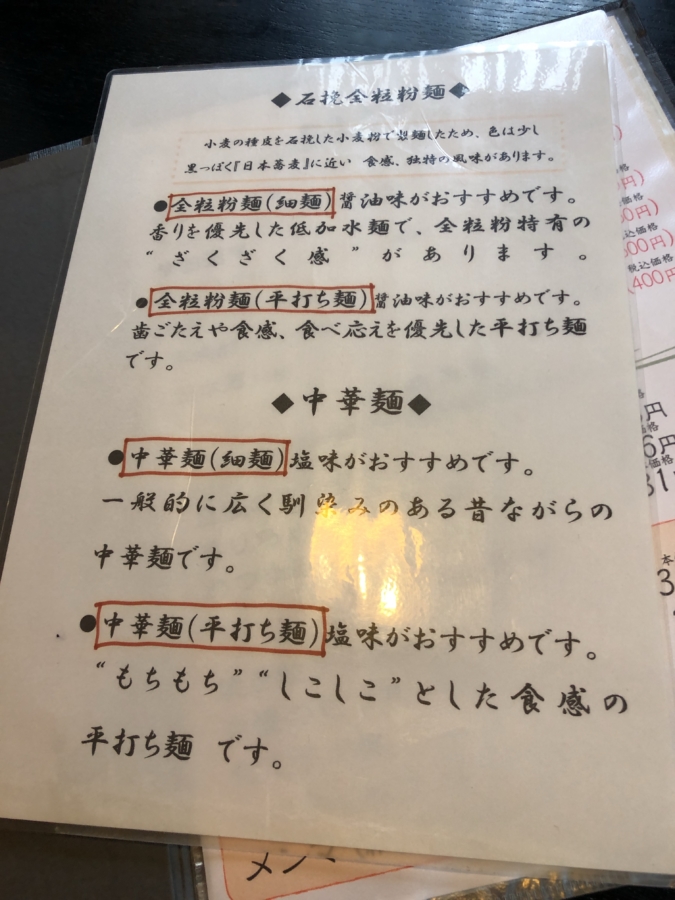 ◆石挽全粒粉麺◆
小麦の種皮を石挽した小麦粉で製麺したため、色は少し
黒っぽく『日本蕎麦』に近い 食感、独特の風味があります。
●全粒粉麺(細麺)醤油味がおすすめです。
香りを優先した低加水麺で、全粒粉特有の
“ざくざく感”があります。
●全粒粉麺(平打ち麺)醤油味がおすすめです。
歯ごたえや食感、食べ応えを優先した平打ち麺
です。
◆中華麺◆
●中華麺(細麺)塩味がおすすめです。
一般的に広く馴染みのある昔ながらの
中華麺です。
●中華麺(平打ち麺)塩味がおすすめです。
“もちもち”“しこしこ”とした食感の
平打ち麺 です。
税込価格
400円)
円
6円
メン